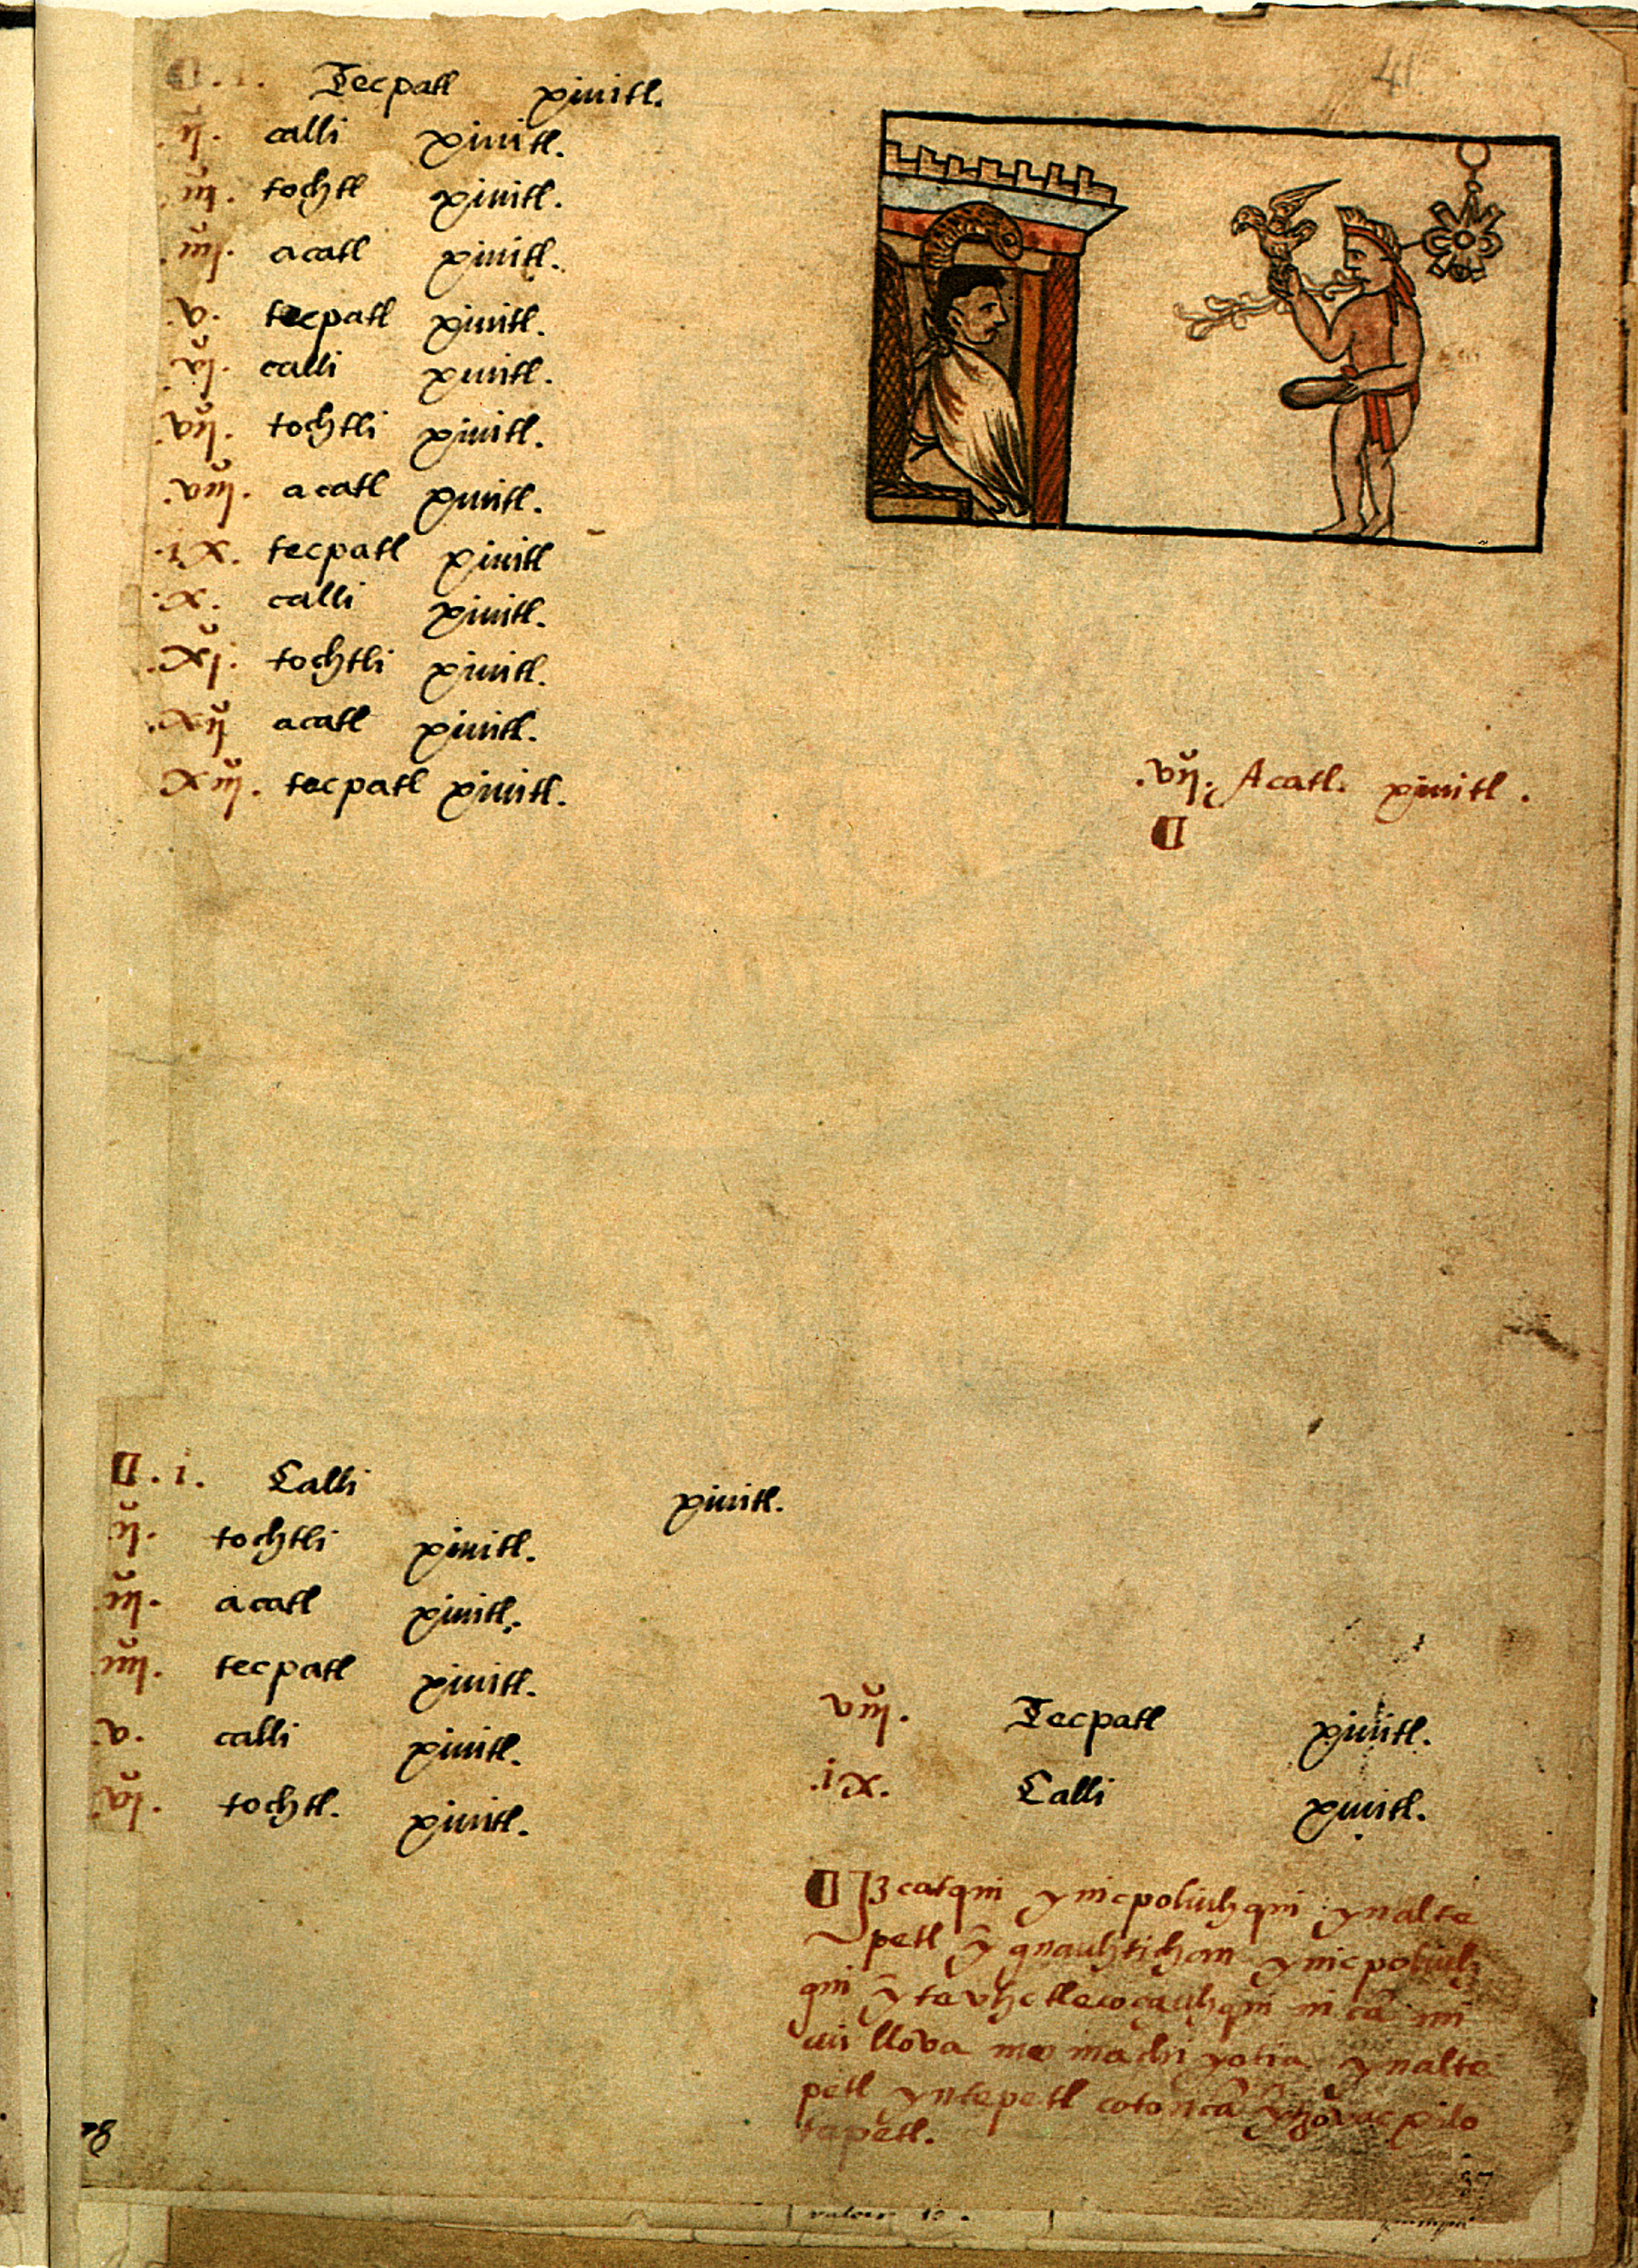 41
.i. Tecpatl xiuitl.
.ij. calli xiuitl.
.iij. tochtl xiuitl.
.iiij. acatl xiuitl.
.v. tecpatl xiuitl.
.vj. calli xiuitl.
.vij. tochtli xiuitl.
.viij. acatl xiuitl.
.ix. tecpatl xiuitl
.x. calli xiuitl.
.xj. tochtli xiuitl.
.xij acatl xiuitl.
xiij. tecpatl xiuitl.
.vij. Acatl. xiuitl.
.i. Calli xiuitl.
.ij. tochtli xiuitl.
.iij. acatl xiuitl.
.iiij. tecpatl xiuitl.
.v. calli xiuitl.
.vj. tochtl. xiuitl.
viij. Tecpatl xiuitl.
.ix. Calli xiuitl.
Izcatqui ynic poliuhqui ynalte
petl ỹ quauhtichan ynic poliuh
qui ỹ
machiyotia ynalte
petl yntepetl cotoncã
tapetl.